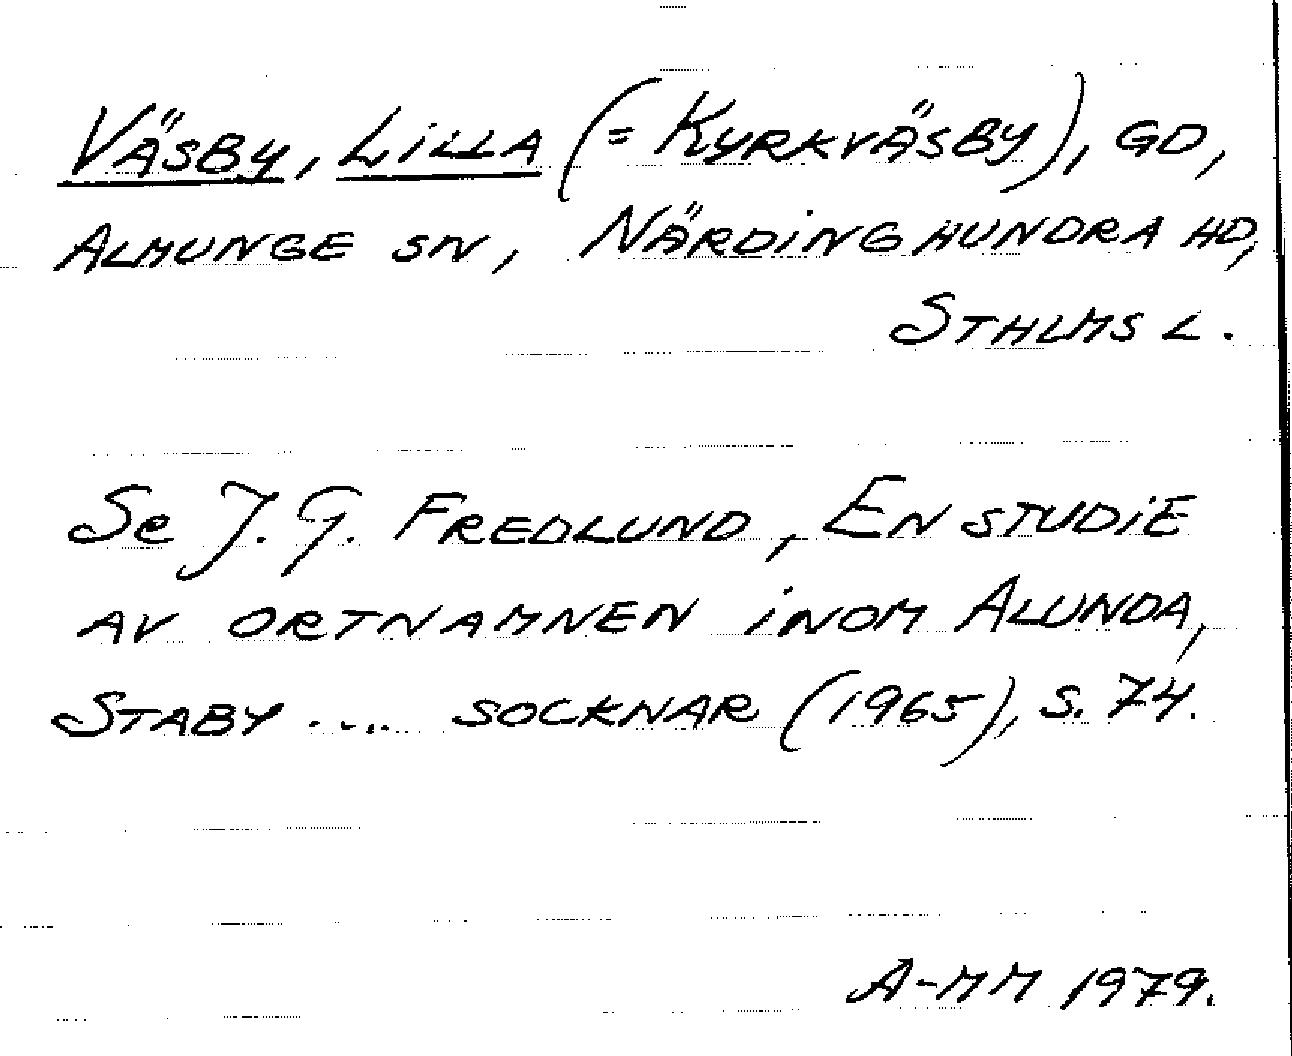 VÄSBY, LILLA (= KYRKVÄSBY), GD,
ALMUNGE SN, NÄRDINGHUNDRA HD,
STHLMS L.
Se J. G. FREDLUND, EN STUDIE
AV ORTNAMNEN INOM ALUNDA,
STABY .... SOCKNAR (1965), S. 74.
A-MM 1979.